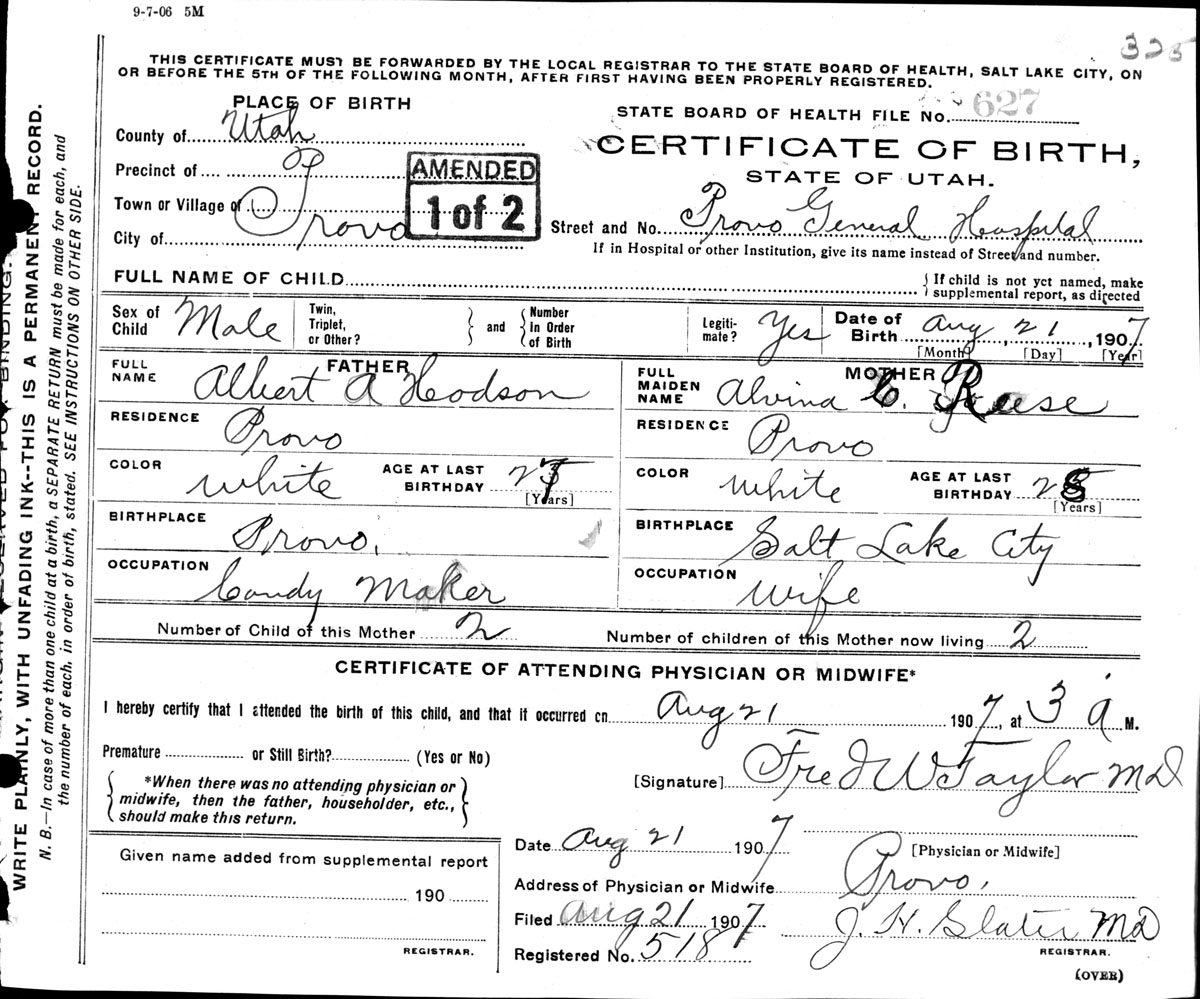 9-7-06 5M
325
THIS CERTIFICATE MUST BE FORWARDED BY THE LOCAL REGISTRAR TO THE STATE BOARD OF HEALTH, SALT LAKE CITY, ON
OR BEFORE THE 5TH OF THE FOLLOWING MONTH, AFTER FIRST HAVING BEEN PROPERLY REGISTERED.
PLACE OF BIRTH
STATE BOARD OF HEALTH FILE No. 627
County of Utah
CERTIFICATE OF BIRTH,
STATE OF UTAH.
Precinct of P
AMENDED
1 of 2
Town or Village of
City of Provo
Street and No. Provo General Hospital
If in Hospital or other Institution, give its name instead of Street and number.
FULL NAME OF CHILD
If child is not yet named, make
supplemental report, as directed
Sex of Child Male
Twin, Triplet, or Other?
and
Number in Order of Birth
Legiti-mate? Yes
Date of Birth Aug, 21, 1907
[Month] [Day] [Year]
FATHER
FULL NAME Albert A Hodson
RESIDENCE Provo
COLOR white AGE AT LAST BIRTHDAY
[Years]
BIRTHPLACE Provo.
OCCUPATION Candy Maker
MOTHER
FULL MAIDEN NAME Alvina C. Reese
RESIDENCE Provo
COLOR white AGE AT LAST BIRTHDAY
[Years]
BIRTHPLACE Salt Lake City
OCCUPATION wife
Number of Child of this Mother 2
Number of children of this Mother now living 2
CERTIFICATE OF ATTENDING PHYSICIAN OR MIDWIFE*
I hereby certify that I attended the birth of this child, and that it occurred on Aug 21 1907, at 3 a M.
Premature or Still Birth? (Yes or No)
[Signature] Fred W Taylor MD
*When there was no attending physician or
midwife, then the father, householder, etc.,
should make this return.
Date Aug 21 1907
[Physician or Midwife]
Given name added from supplemental report
190
REGISTRAR.
Address of Physician or Midwife Provo.
Filed Aug 21 1907 J. H. Slater MD
REGISTRAR.
Registered No. 518
(OVER)
WRITE PLAINLY, WITH UNFADING INK--THIS IS A PERMANENT RECORD.
N. B.—In case of more than one child at a birth, a SEPARATE RETURN must be made for each, and
the number of each, in order of birth, stated. SEE INSTRUCTIONS ON OTHER SIDE.